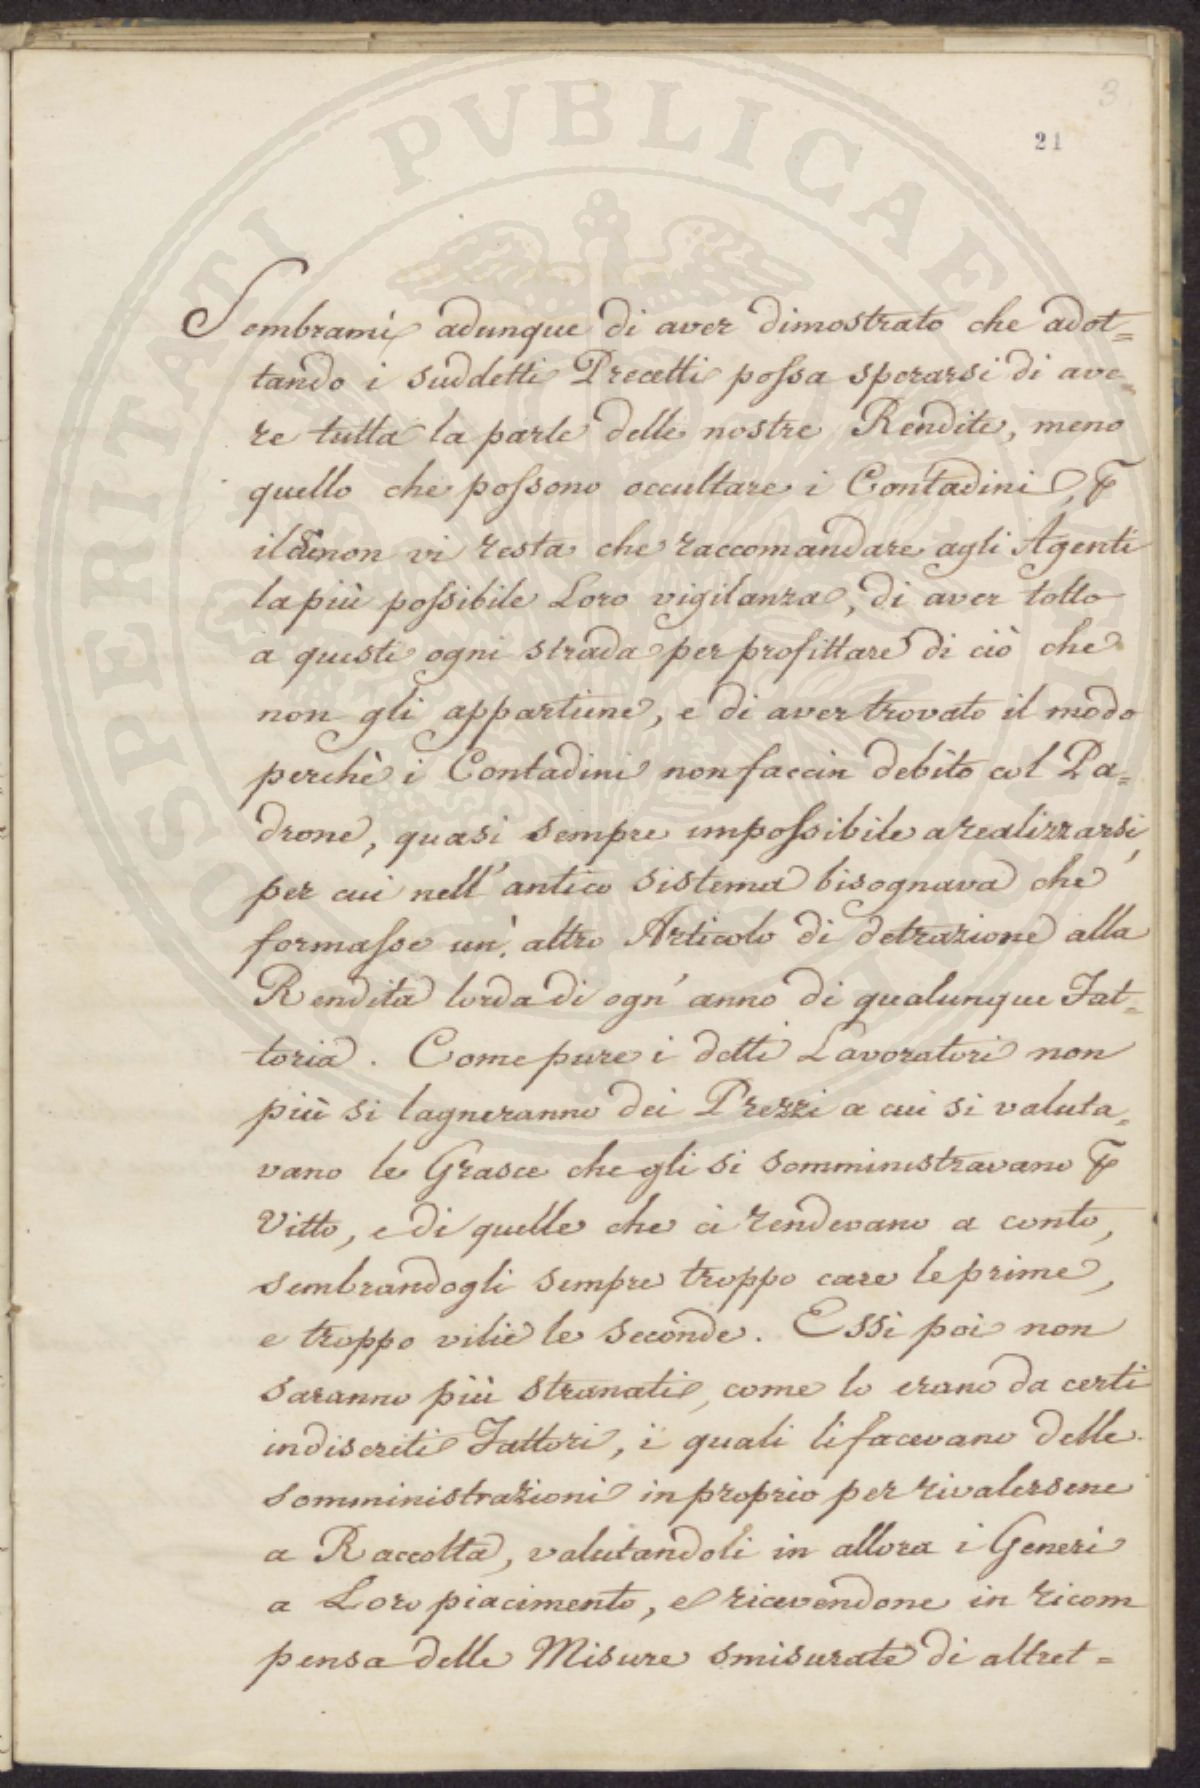 3
21
Sembrami adunque di aver dimostrato che adot=
tando i suddetti Precetti possa sperarsi di ave=
re tutta la parte delle nostre Rendite, meno
quello che possono occultare i Contadini,
non vi resta che raccomandare agli Agenti
la più possibile Loro vigilanza, di aver tolto
a questi ogni strada per profittare di ciò che
non gli appartiene, e di aver trovato il modo
perchè i Contadini non faccin debito col Pa=
drone, quasi sempre impossibile a realizzarsi,
per cui nell' antico sistema bisognava che
formasse un' altro Articolo di detrazione alla
Rendita lorda di ogn' anno di qualunque Fat=
toria. Come pure i detti Lavoratori non
più si lagneranno dei Prezzi a cui si valuta=
vano le Grasce che gli si somministravano
Vitto, e di quelle che ci rendevano a conto,
sembrandogli sempre troppo care le prime,
e troppo vilie le seconde. Essi poi non
saranno più stranati, come lo erano da certi
indiscriti Fattori, i quali li facevano delle
somministrazioni in proprio per rivalersene
a Raccolta, valutandoli in allora i Generi
a Loro piacimento, e ricevendone in ricom
pensa delle Misure smisurate di altret=
PROSPERITATI PVBLICAE